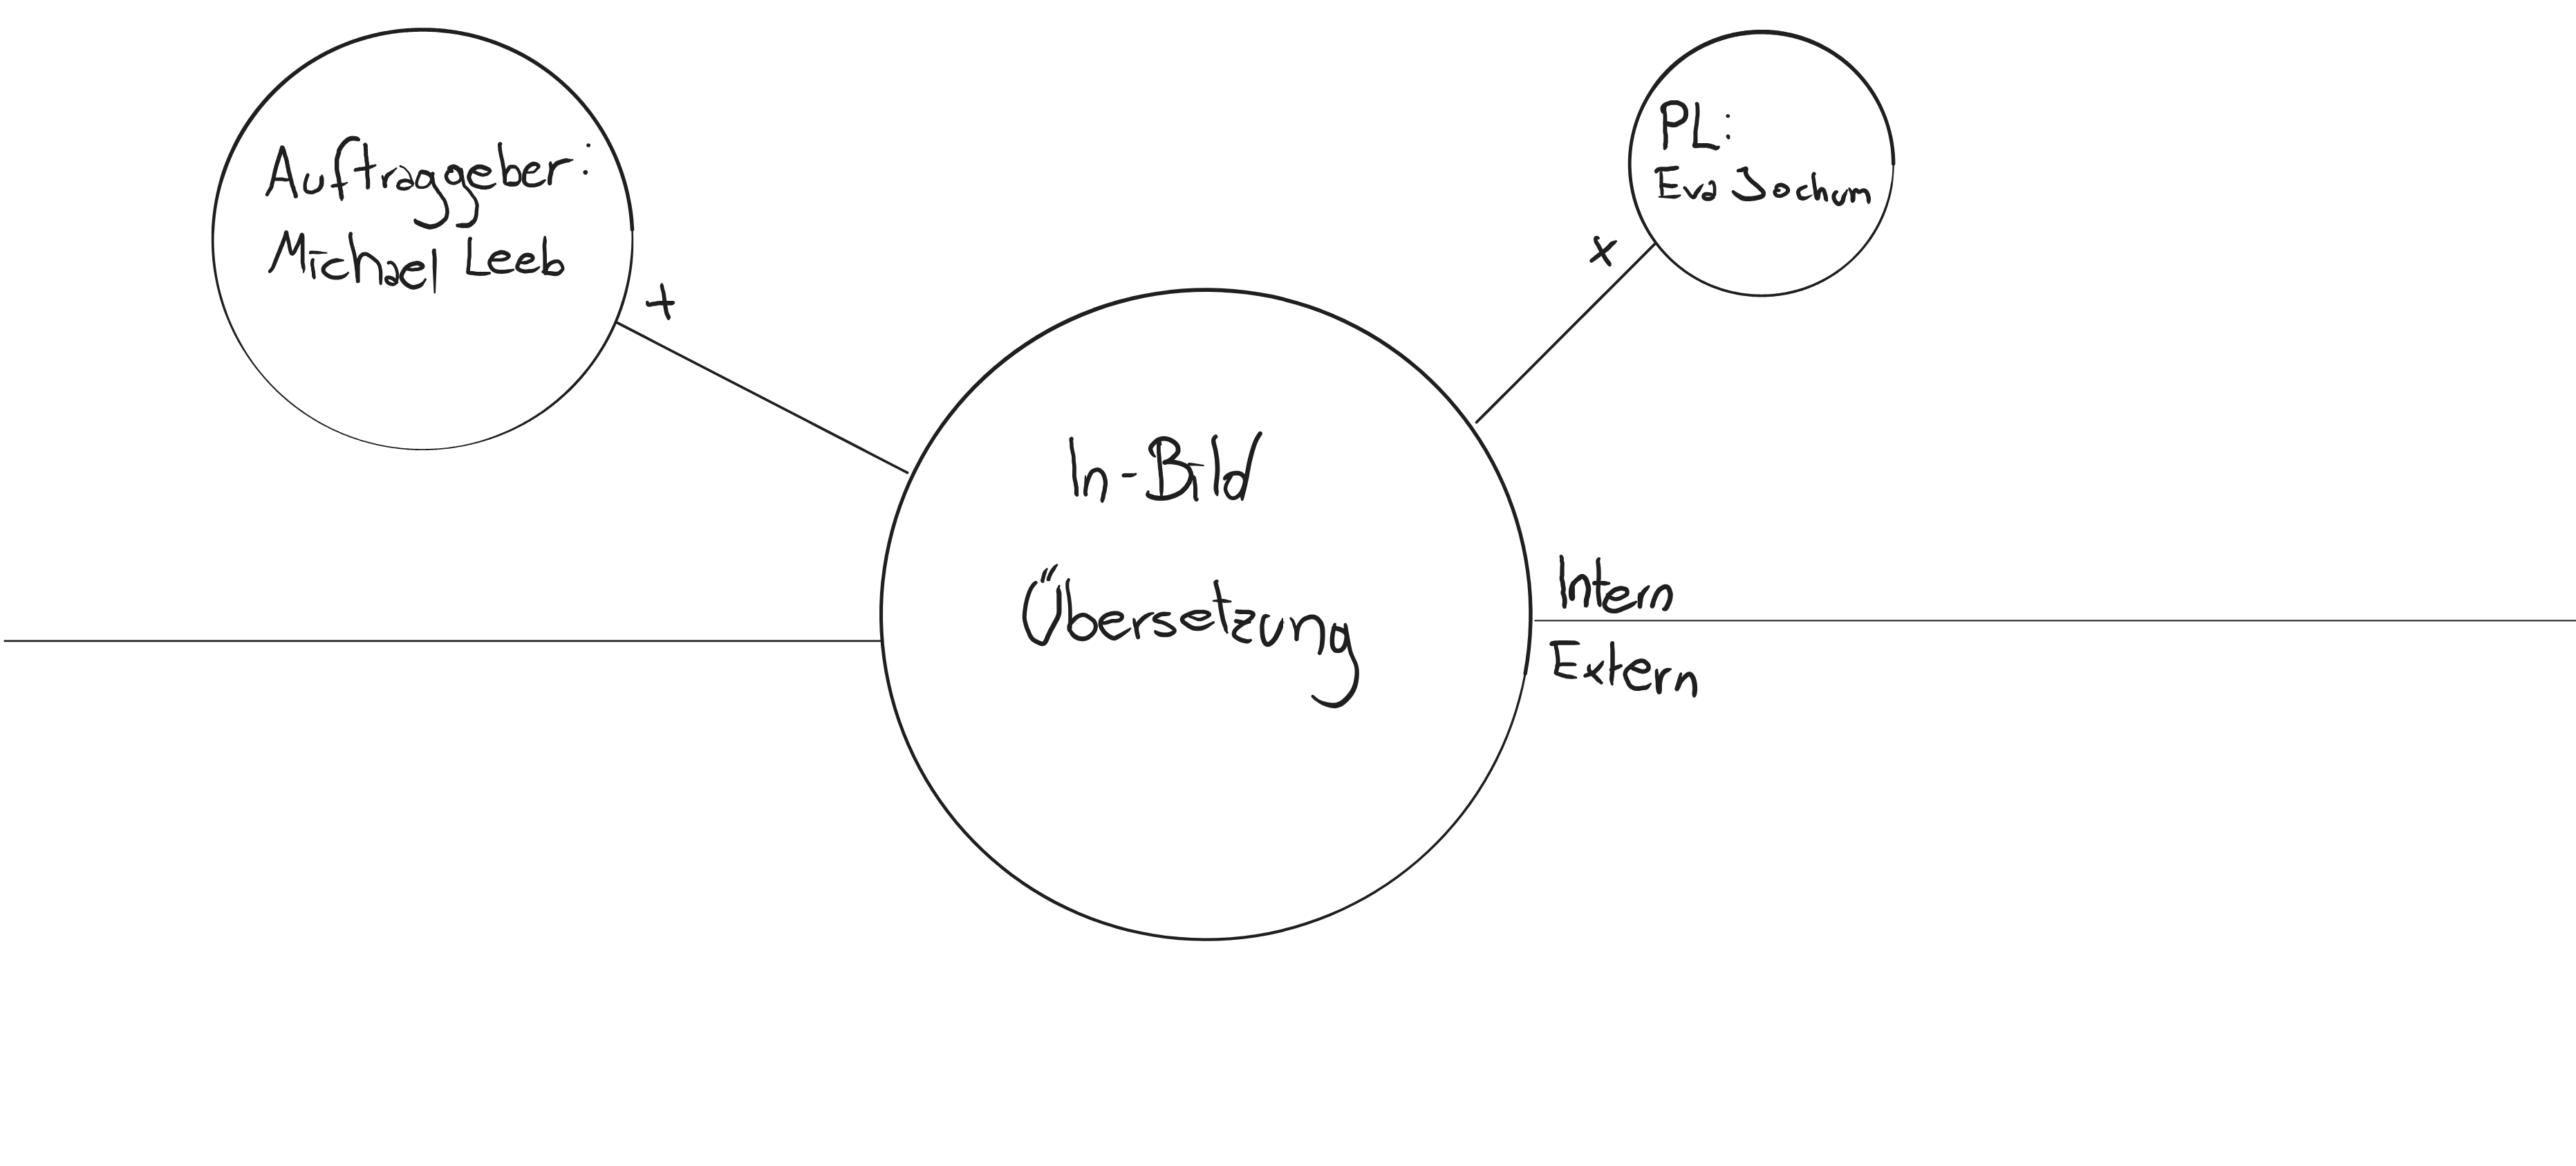 Auftraggeber:
Michael Leeb
+
PL:
Eva Jochum
x
In-Bild
Übersetzung
Intern
Extern